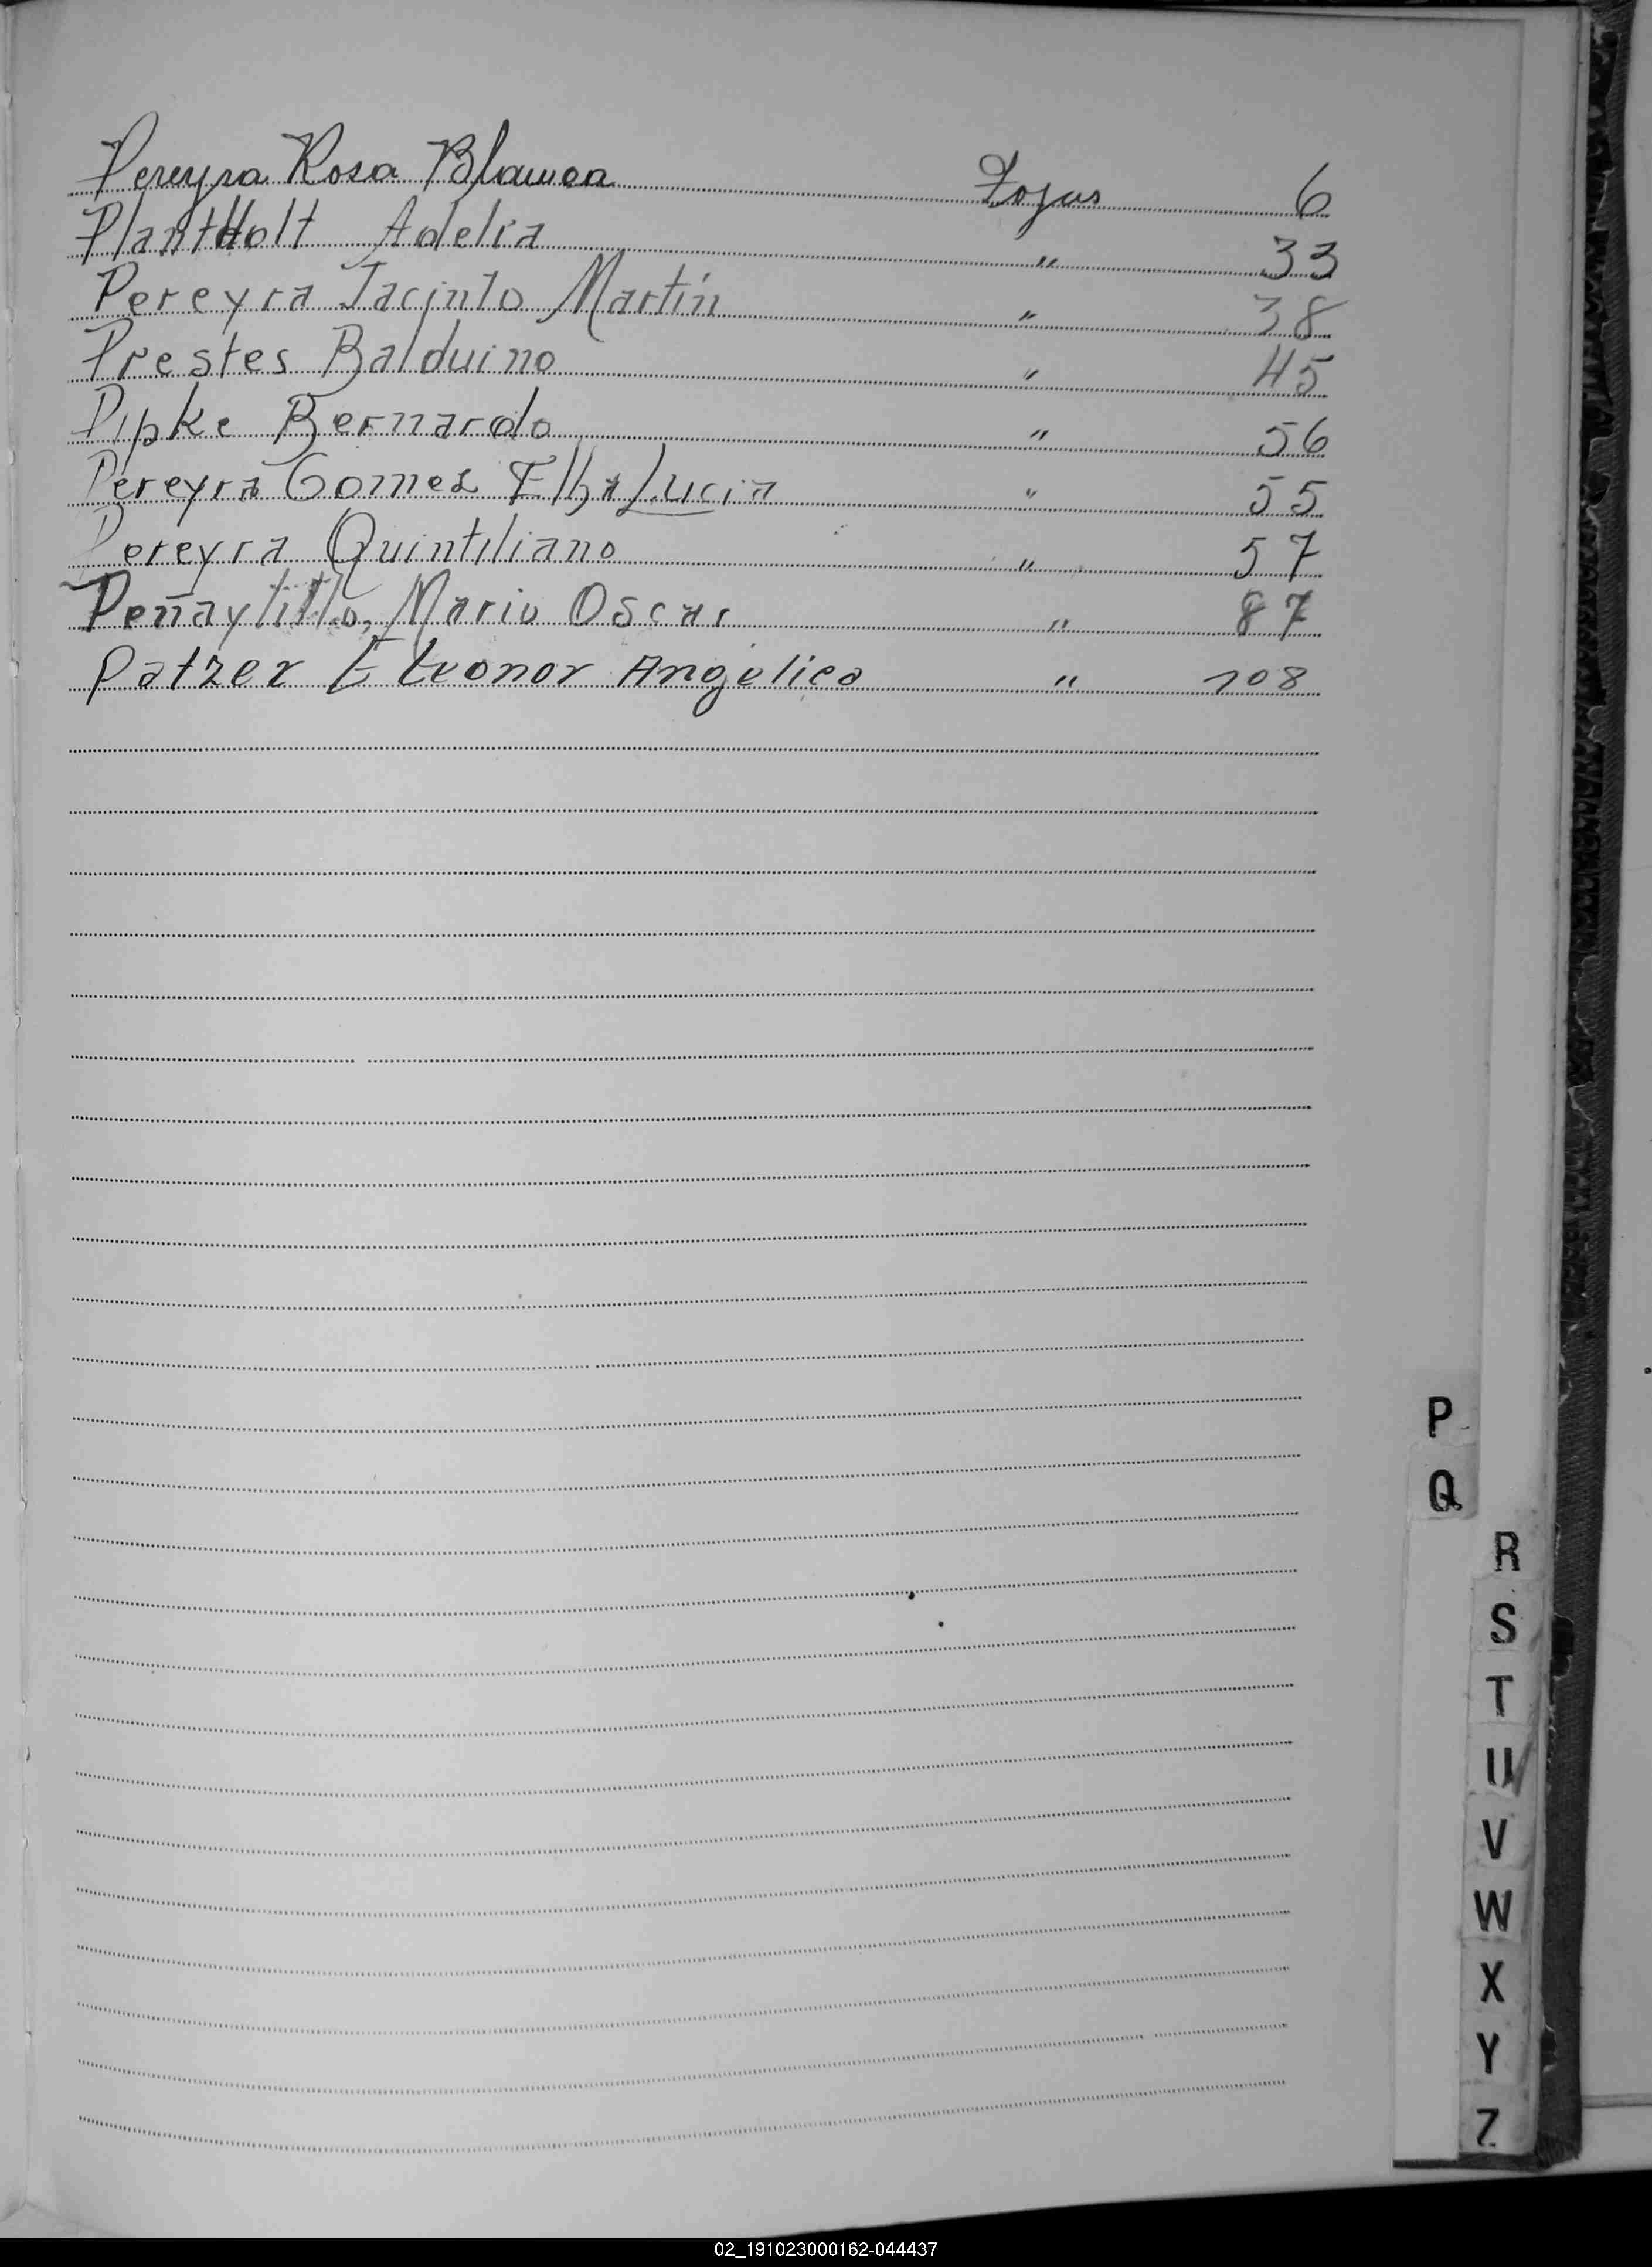 Pereyra Rosa Blanca Fojas 6
Plantholt Adelia " 33
Pereyra Jacinto Martín " 38
Prestes Balduino " 45
Pipke Bernardo " 56
Pereyra Gomez Elba Lucia " 55
Pereyra Quintiliano " 57
Peñaylillo, Mario Oscar " 87
Patzer Eleonor Angélica " 108
P
Q
R
S
T
U
V
W
X
Y
Z
02_191023000162-044437